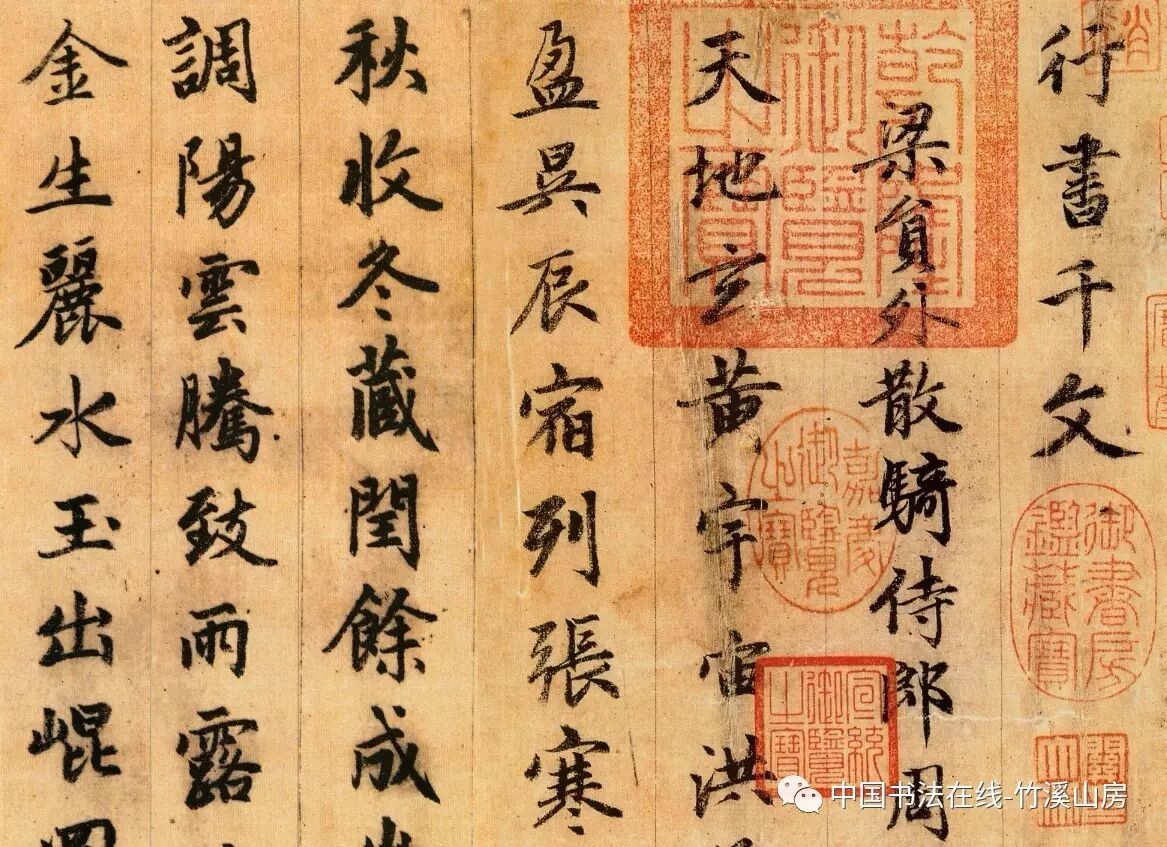 行書千文
梁員外散騎侍郎周
天地玄黄宇宙洪
盈昃辰宿列張寒
秋收冬藏閏餘成
調陽雲騰致雨露
金生麗水玉出崐
乾隆御覽之寶
嘉慶御覽之寶
宣統御覽之寶
御書房鑑藏寶
中国书法在线-竹溪山房